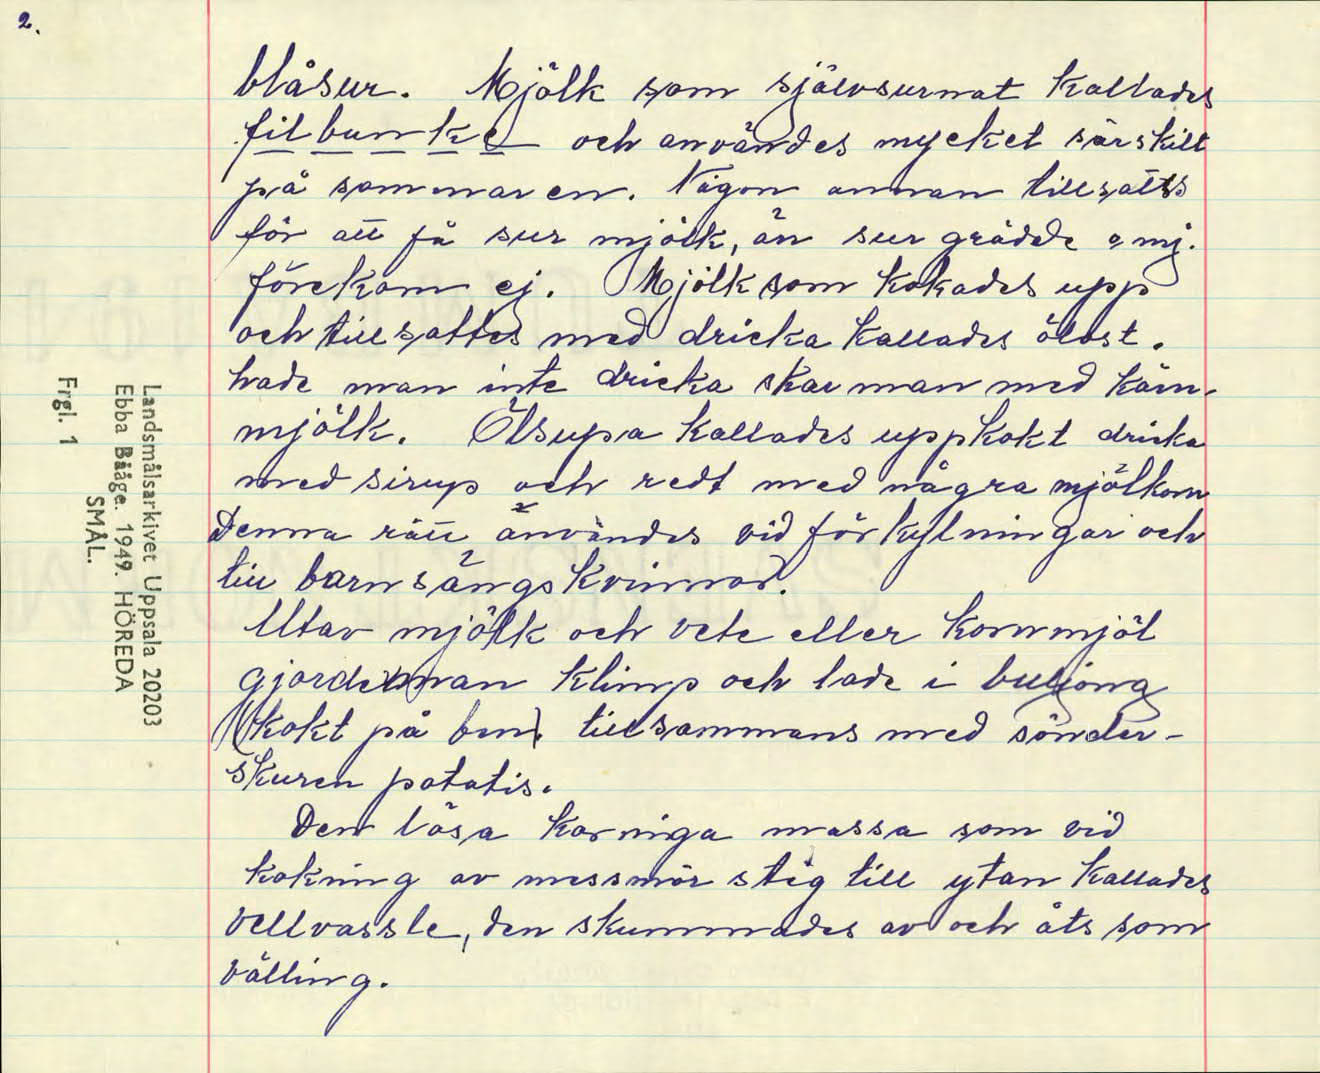 2.
blåsur. Mjölk som självsurnat kallades
filbunke och användes mycket särskilt
på sommaren. Någon annan tillsatts
för att få sur mjölk, än sur grädde o mj.
förekom ej. Mjölk som kokades upp
och tillsattes med dricka kallades ölost.
hade man inte dricka skar man med kärn-
mjölk. Ölsupa kallades uppkokt dricka
med sirup och redt med några mjölkorn
Denna rätt användes vid förkylningar och
till barnsängskvinnor.
Utav mjölk och vete eller kornmjöl
gjorde man klimp och lade i buljong
(kokt på ben) tillsammans med sönder-
skuren potatis.
Den lösa korniga massa som vid
kokning av messmör steg till ytan kallades
vellvassle, den skummades av och åts som
välling.
Landsmålsarkivet Uppsala 20203
Ebba Bååge. 1949. HÖREDA
SMÅL.
Frgl. 1